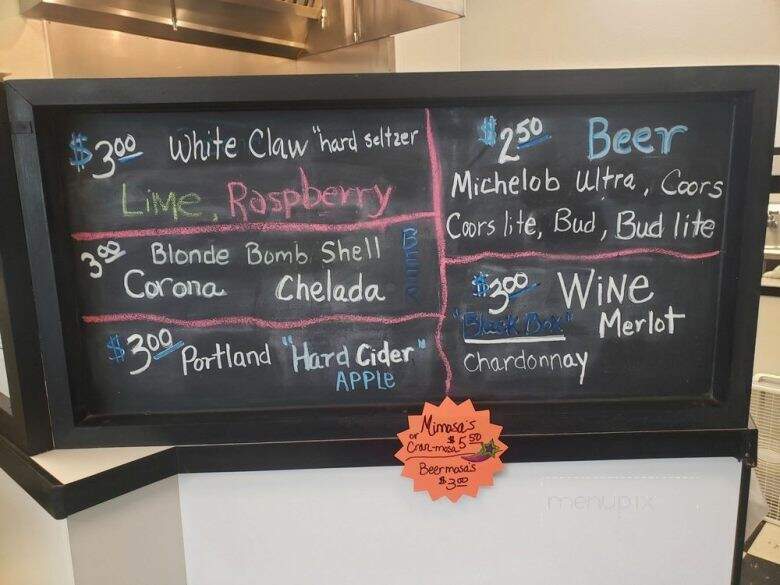 $3.00 White Claw "hard seltzer"
Lime, Raspberry
3.00 Blonde Bomb Shell BEER
Corona Chelada
$3.00 Portland "Hard Cider"
APPLE
$2.50 Beer
Michelob Ultra, Coors
Coors lite, Bud, Bud lite
$3.00 WiNe
"Black Box" Merlot
Chardonnay
Mimosa's
or $5.50
Cran-mosa
Beermosa's
$3.00
menupix